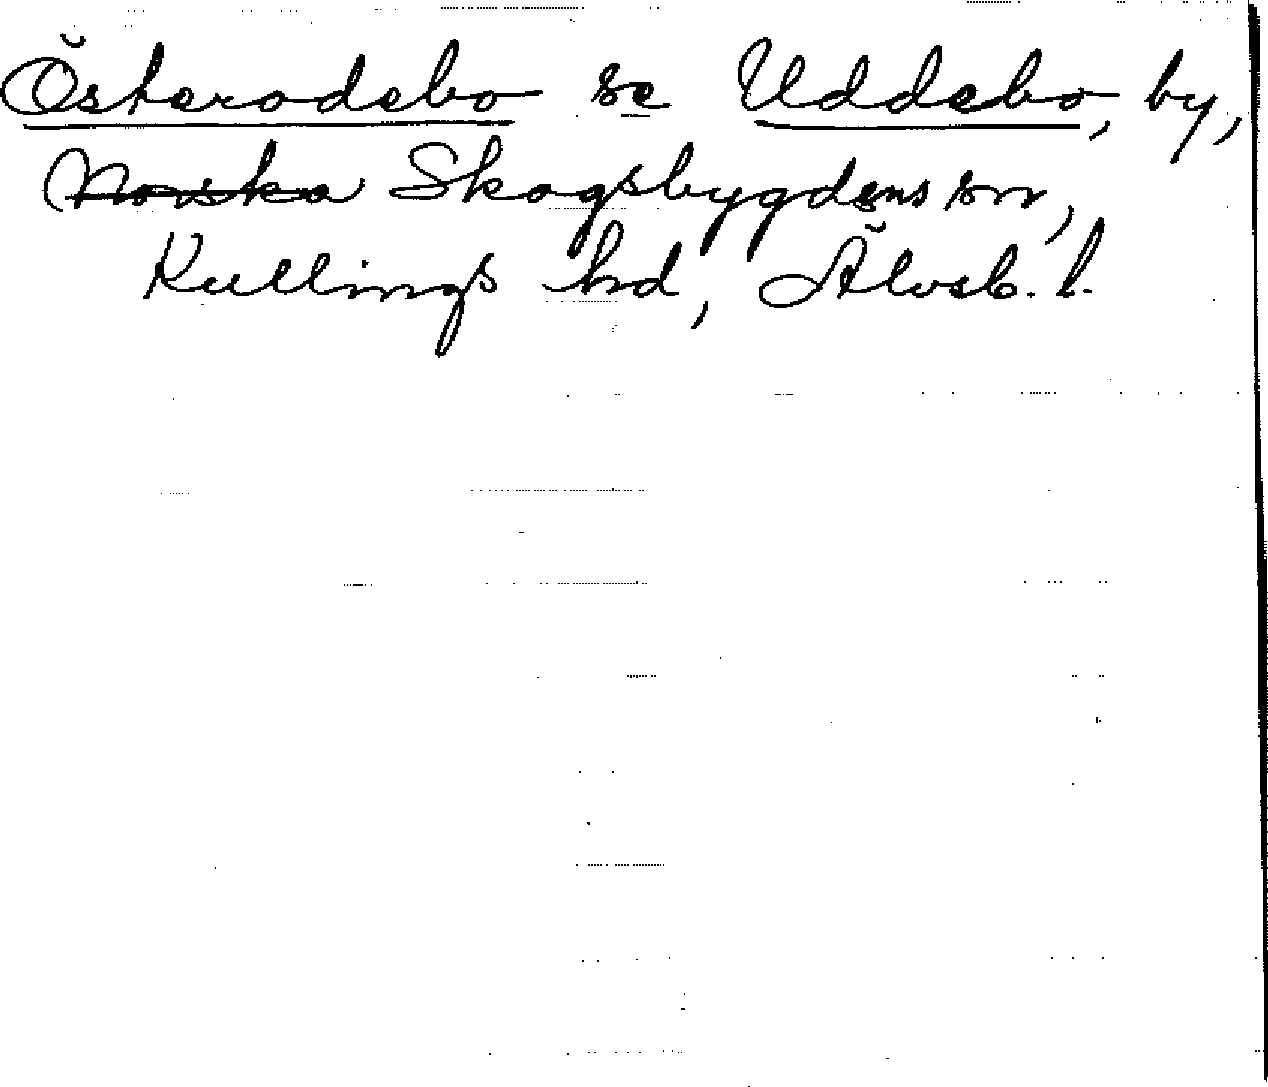 Österodebo se Uddebo, by,
Norska Skogsbygdens sn,
Kullings hd, Älvsb. l.